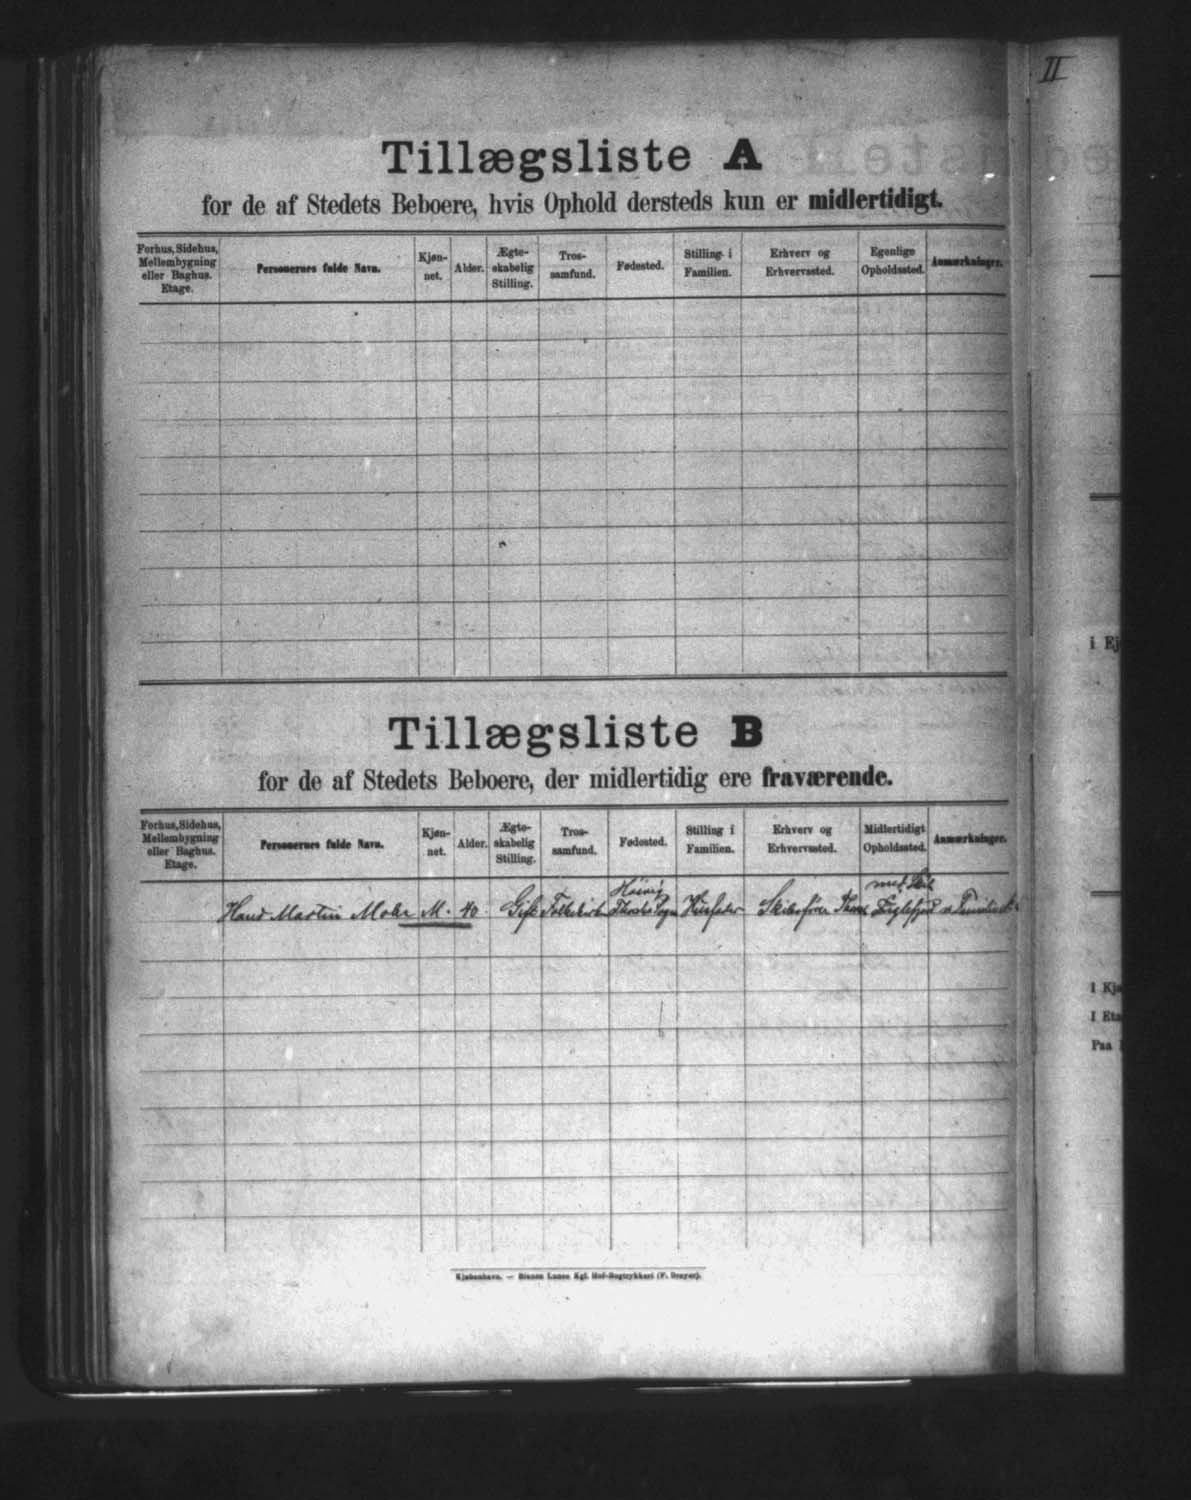 II
Tillægsliste A
for de af Stedets Beboere, hvis Ophold dersteds kun er midlertidigt.
Forhus, Sidehus, Mellembygning eller Baghus. Etage.
Personernes fulde Navn.
Kjøn-net.
Alder.
Ægte-skabelig Stilling.
Tros-samfund.
Fødested.
Stilling i Familien.
Erhverv og Erhvervssted.
Egenlige Opholdssted.
Anmærkninger.
Tillægsliste B
for de af Stedets Beboere, der midlertidig ere fraværende.
Forhus, Sidehus, Mellembygning eller Baghus. Etage.
Personernes fulde Navn.
Kjøn-net.
Alder.
Ægte-skabelig Stilling.
Tros-samfund.
Fødested.
Stilling i Familien.
Erhverv og Erhvervssted.
Midlertidigt Opholdssted.
Anmærkninger.
Hans Martin Mohr M. 40 Gift Folkekirk Sogn Husfader Skibsfører
Kjøbenhavn. — Bianco Lunos Kgl. Hof-Bogtrykkeri (F. Dreyer).
i Ej
I Kjø
I Eta
Paa